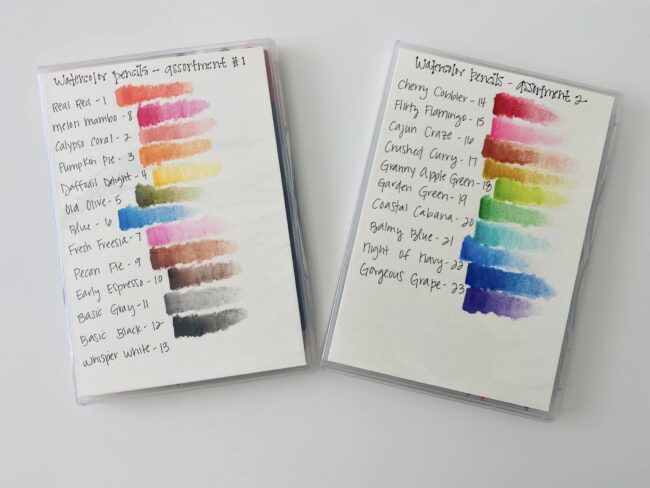 Watercolor pencils - assortment #1
Real Red - 1
melon mambo - 8
Calypso Coral - 2
Pumpkin Pie - 3
Daffodil Delight - 4
Old Olive - 5
Blue - 6
Fresh Freesia - 7
Pecan Pie - 9
Early Espresso - 10
Basic Gray - 11
Basic Black - 12
Whisper White - 13
Watercolor pencils - assortment 2
Cherry Cobbler - 14
Flirty Flamingo - 15
Cajun Craze - 16
Crushed Curry - 17
Granny Apple Green - 18
Garden Green - 19
Coastal Cabana - 20
Balmy Blue - 21
Night of Navy - 22
Gorgeous Grape - 23